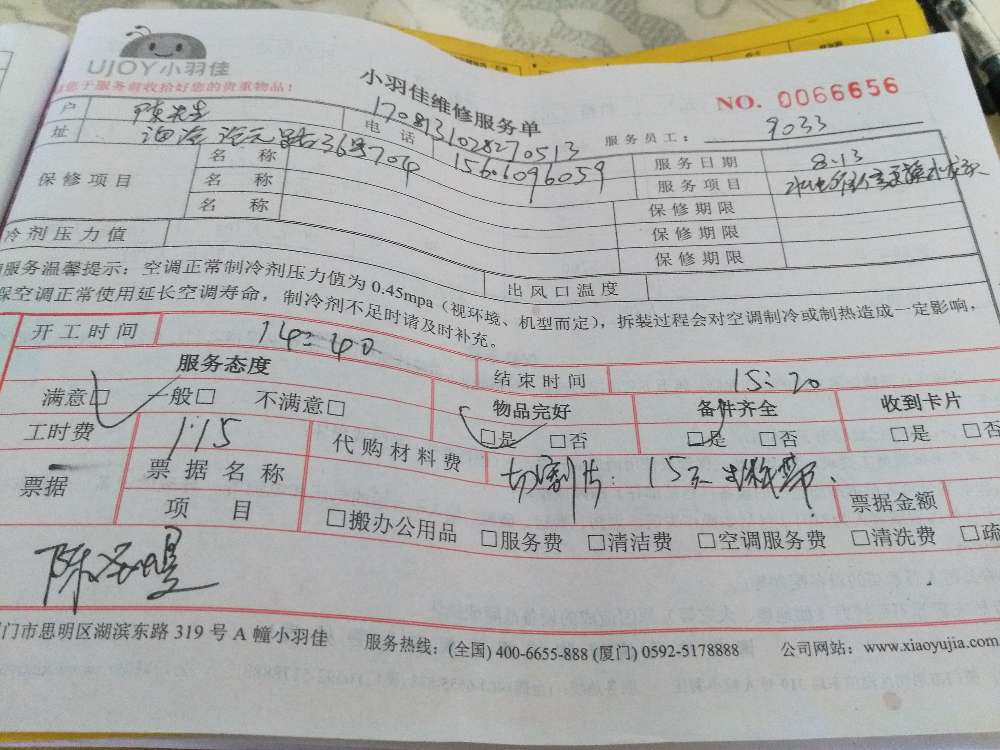 UJOY小羽佳
小羽佳维修服务单
NO. 0066656
您于服务前收拾好您的贵重物品！
户 陈先生 电话 1708131028270513 服务员工： 9033
址 36号704 15606096059 服务日期 8.13
保修项目 名称 服务项目
名称 保修期限
名称 保修期限
冷剂压力值 保修期限
出风口温度
服务温馨提示：空调正常制冷剂压力值为0.45mpa（视环境、机型而定），拆装过程会对空调制冷或制热造成一定影响，
保空调正常使用延长空调寿命，制冷剂不足时请及时补充。
开工时间 14:40 结束时间 15:20
服务态度 物品完好 备件齐全 收到卡片
满意□ 一般□ 不满意□ □是 □否 □是 □否 □是 □否
工时费 115 代购材料费 切割片：15元 生料带
票据 票据名称 票据金额
项目 □搬办公用品 □服务费 □清洁费 □空调服务费 □清洗费 □疏
门市思明区湖滨东路319号A幢小羽佳 服务热线：(全国) 400-6655-888 (厦门) 0592-5178888 公司网站：www.xiaoyujia.com